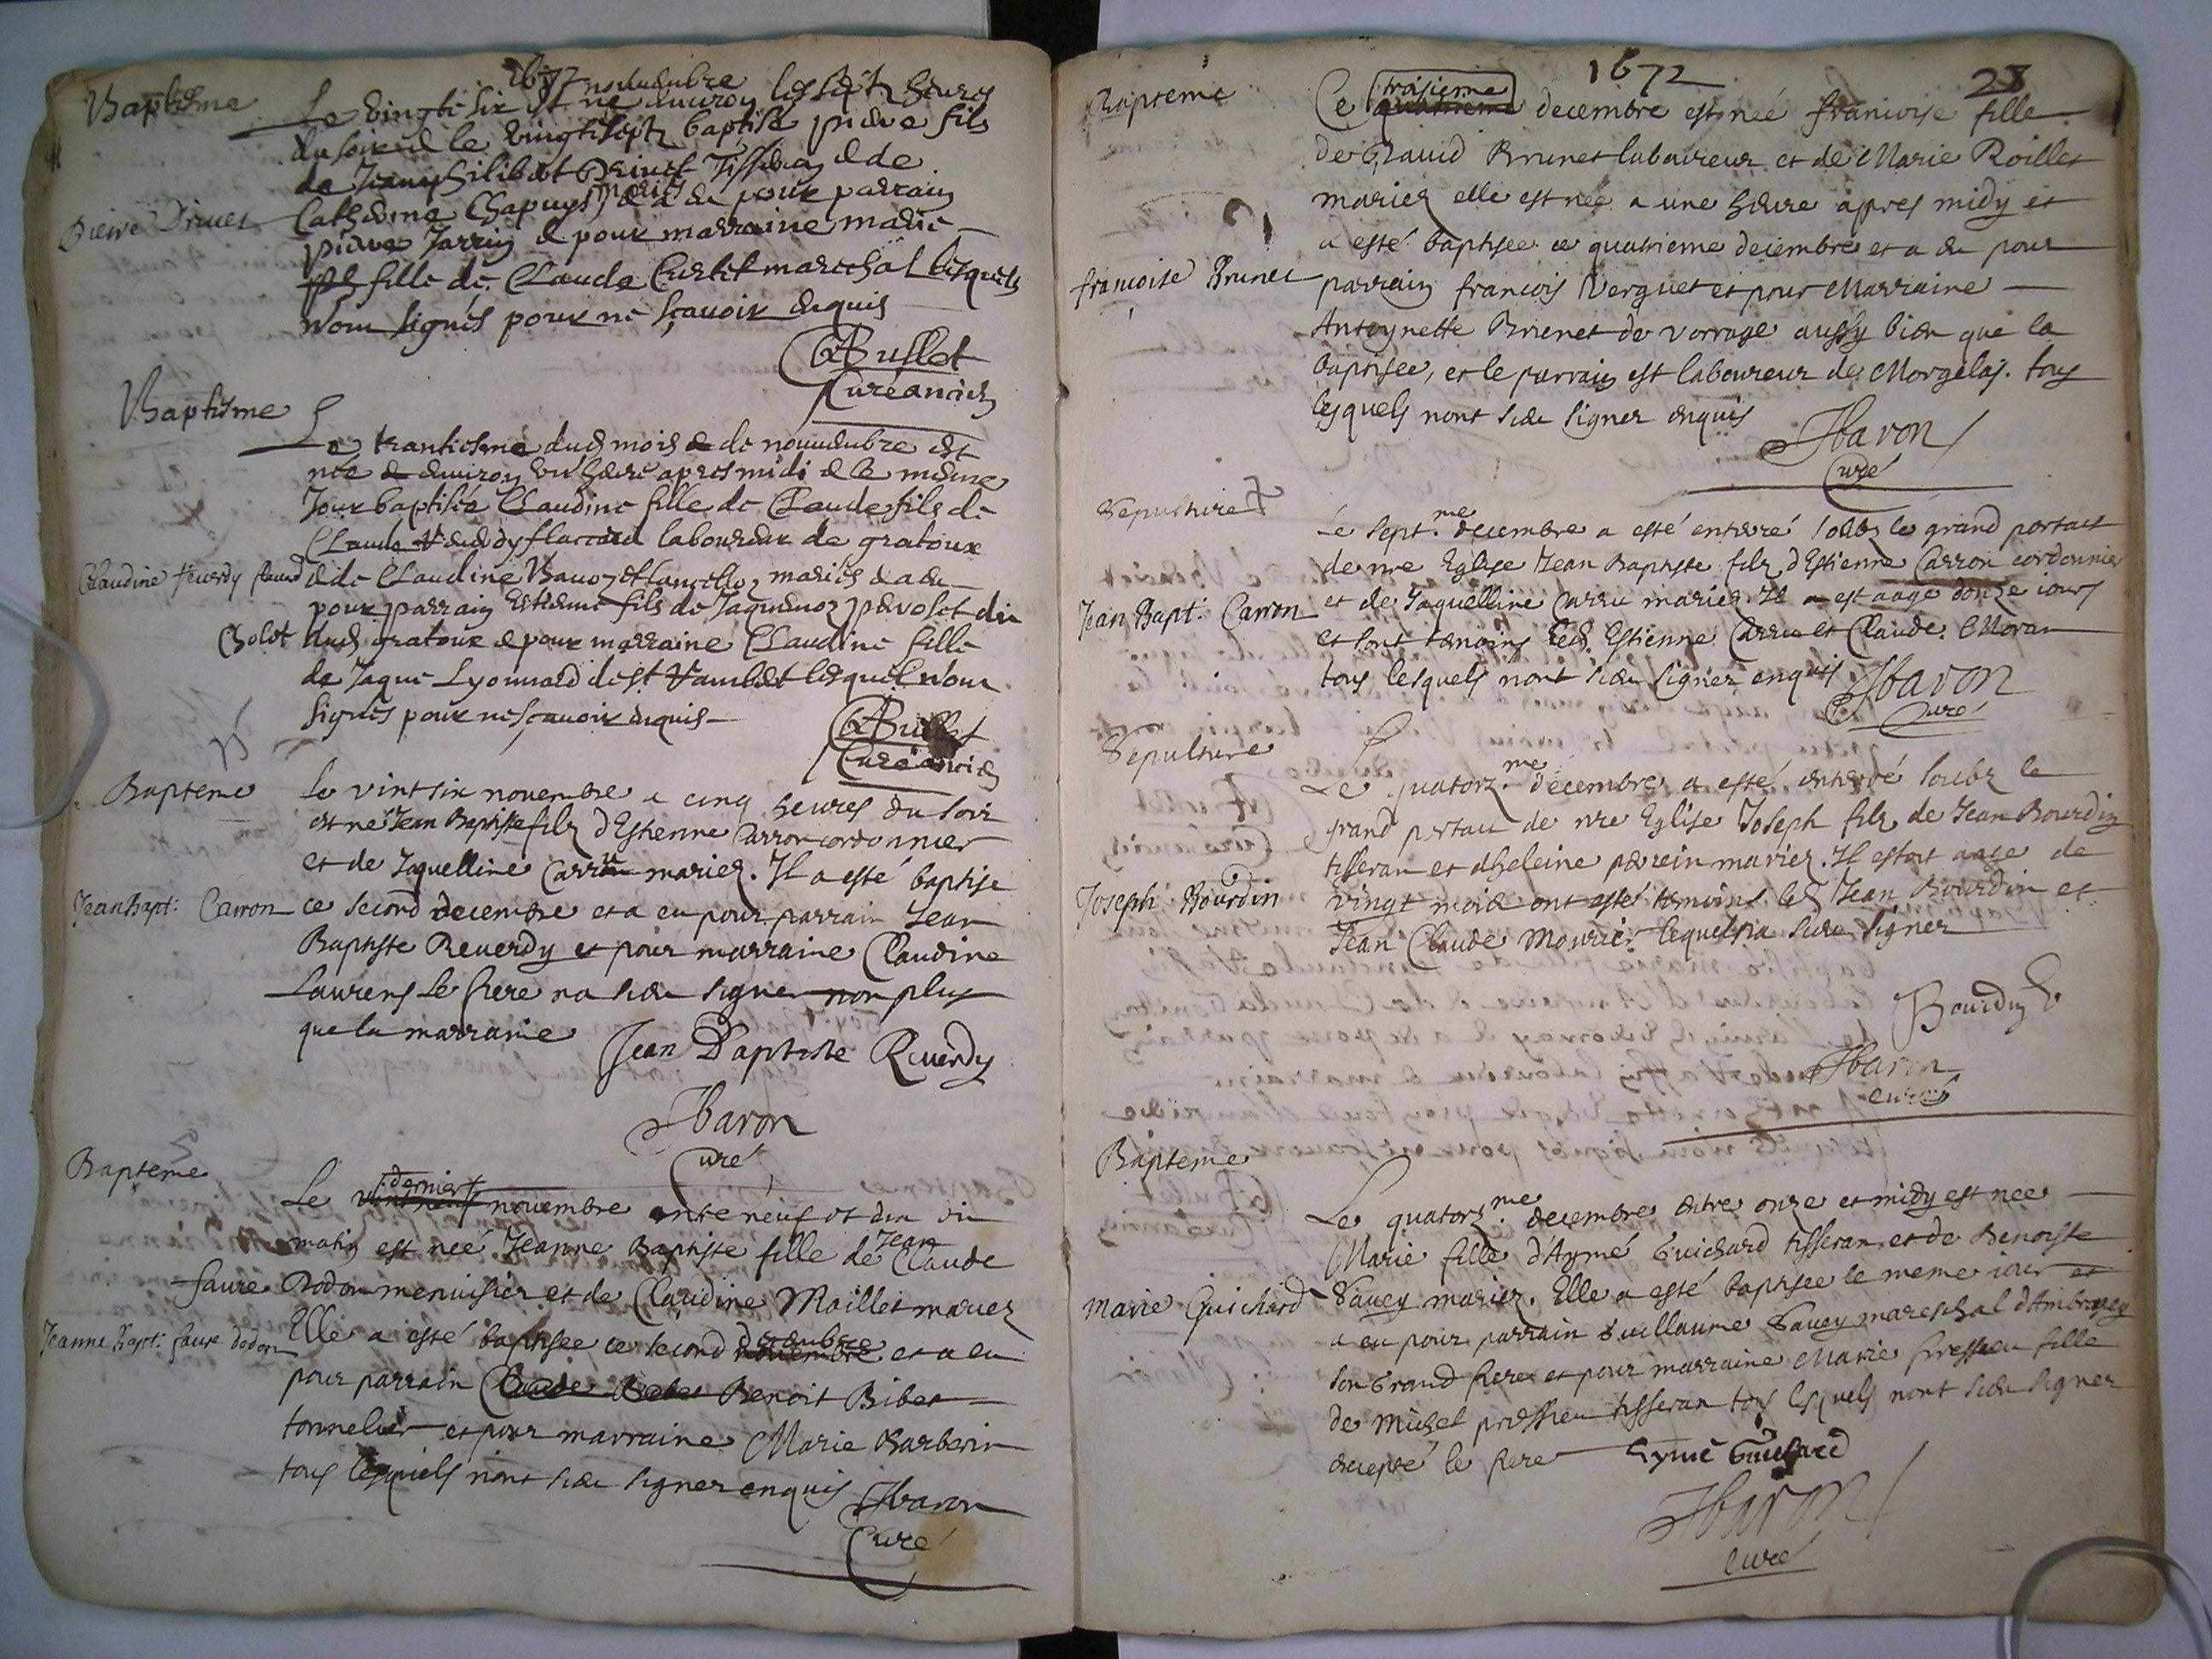 1672
Baptisme
novembre
Le vingt six est né environ les sept heures
du soir et le vingt sept baptisé pierre fils
de Jean philibert Drivet Tisseran et de
Catherine Chapuys mariés et a eu pour parrain
Pierre Drivet
pierre Jarrin et pour marraine marie
fille de Claude Curtet marechal lesquels
n'ont signés pour ne sçavoir enquis
Bullet
Curé ancien
Baptisme
Le trantiesme dud mois de novembre est
née environ une heure apres midi et le mesme
Jour baptisée Claudine fille de Claude fils de
Claude flaccard laboureur de gratoux
Claudine
et de Claudine mariés et a eu
pour parrain Estienne fils de
Cholet dud gratoux et pour marraine Claudine fille
de Jaque Lyonnard de st lesquels n'ont
signés pour ne sçavoir enquis
Bullet
Curé ancien
Bapteme
Le vint six novembre a cinq heures du soir
est né Jean Baptiste filz d'Estienne Carron cordonnier
et de Jaquelline Carru mariez. Il a esté baptise
Jean Bapt: Carron
ce second decembre et a eu pour parrain Jean
Baptiste Reverdy et pour marraine Claudine
Laurens le pere na sceu signer non plus
que la marraine
Jean Baptiste Reverdy
Jbaron
Curé
Bapteme
dernier
Le novembre entre neuf et dix du
Jean
matin est née Jeanne Baptiste fille de Claude
faure Dodon menuisier et de Claudine Maillet mariez
Jeanne Bapt: faure dodon
Elle a esté baptisee ce second decembre et a eu
pour parrain Claude Benoit Bibet
tonnelier et pour marraine Marie Barberin
tous lesquels nont sceu signer enquis
Jbaron
Curé
1672
28
Bapteme
troisieme
Ce quatrieme decembre est née francoise fille
de Brunet laboureur et de Marie Roillet
mariez elle est née a une heure apres midy et
a esté baptisee ce quatrieme decembre et a eu pour
francoise Brunet
parrain francois Verguet et pour Marraine
Antoynette Brunet de vorrage aussy bien que la
baptisee, et le parrain est laboureur de Morgelas. tous
lesquels nont sceu signer enquis
Jbaron
Curé
Sepulture
Le sept.me decembre a esté enterré soubz le grand portail
de nre Eglise Jean Baptiste filz d'Estienne Carron cordonnier
Jean Bapt: Carron
et de Jaquelline Carru mariez Il est aage donze iours
et sont temoins led. Estienne Carru et Claude Moran
tous lesquels nont sceu signer enquis
Jbaron
Curé
Sepulture
Le quatorz.me decembre a esté enterré soubz le
grand portail de nre Eglise Joseph filz de Jean Bourdin
tisseran et dheleine perrein mariez. Il estoit aage de
Joseph Bourdin
vingt mois ont esté temoins led Jean Bourdin et
Jean Claude Mourier lequel na sceu signer
Bourdin
Jbaron
curé
Bapteme
Le quatorz.me decembre entre onze et midy est nee
Marie fille d'Aymé Guichard tisseran et de Benoiste
Marie Guichard
Savey mariez. Elle a esté baptisee le meme iour et
a eu pour parrain Guillaume Savey mareschal d'Ambronay
son Grand pere et pour marraine Marie pressieu fille
de Michel pressieu tisseran tous lesquels nont sceu signer
excepté le pere
Eymé Guichard
Jbaron
curé